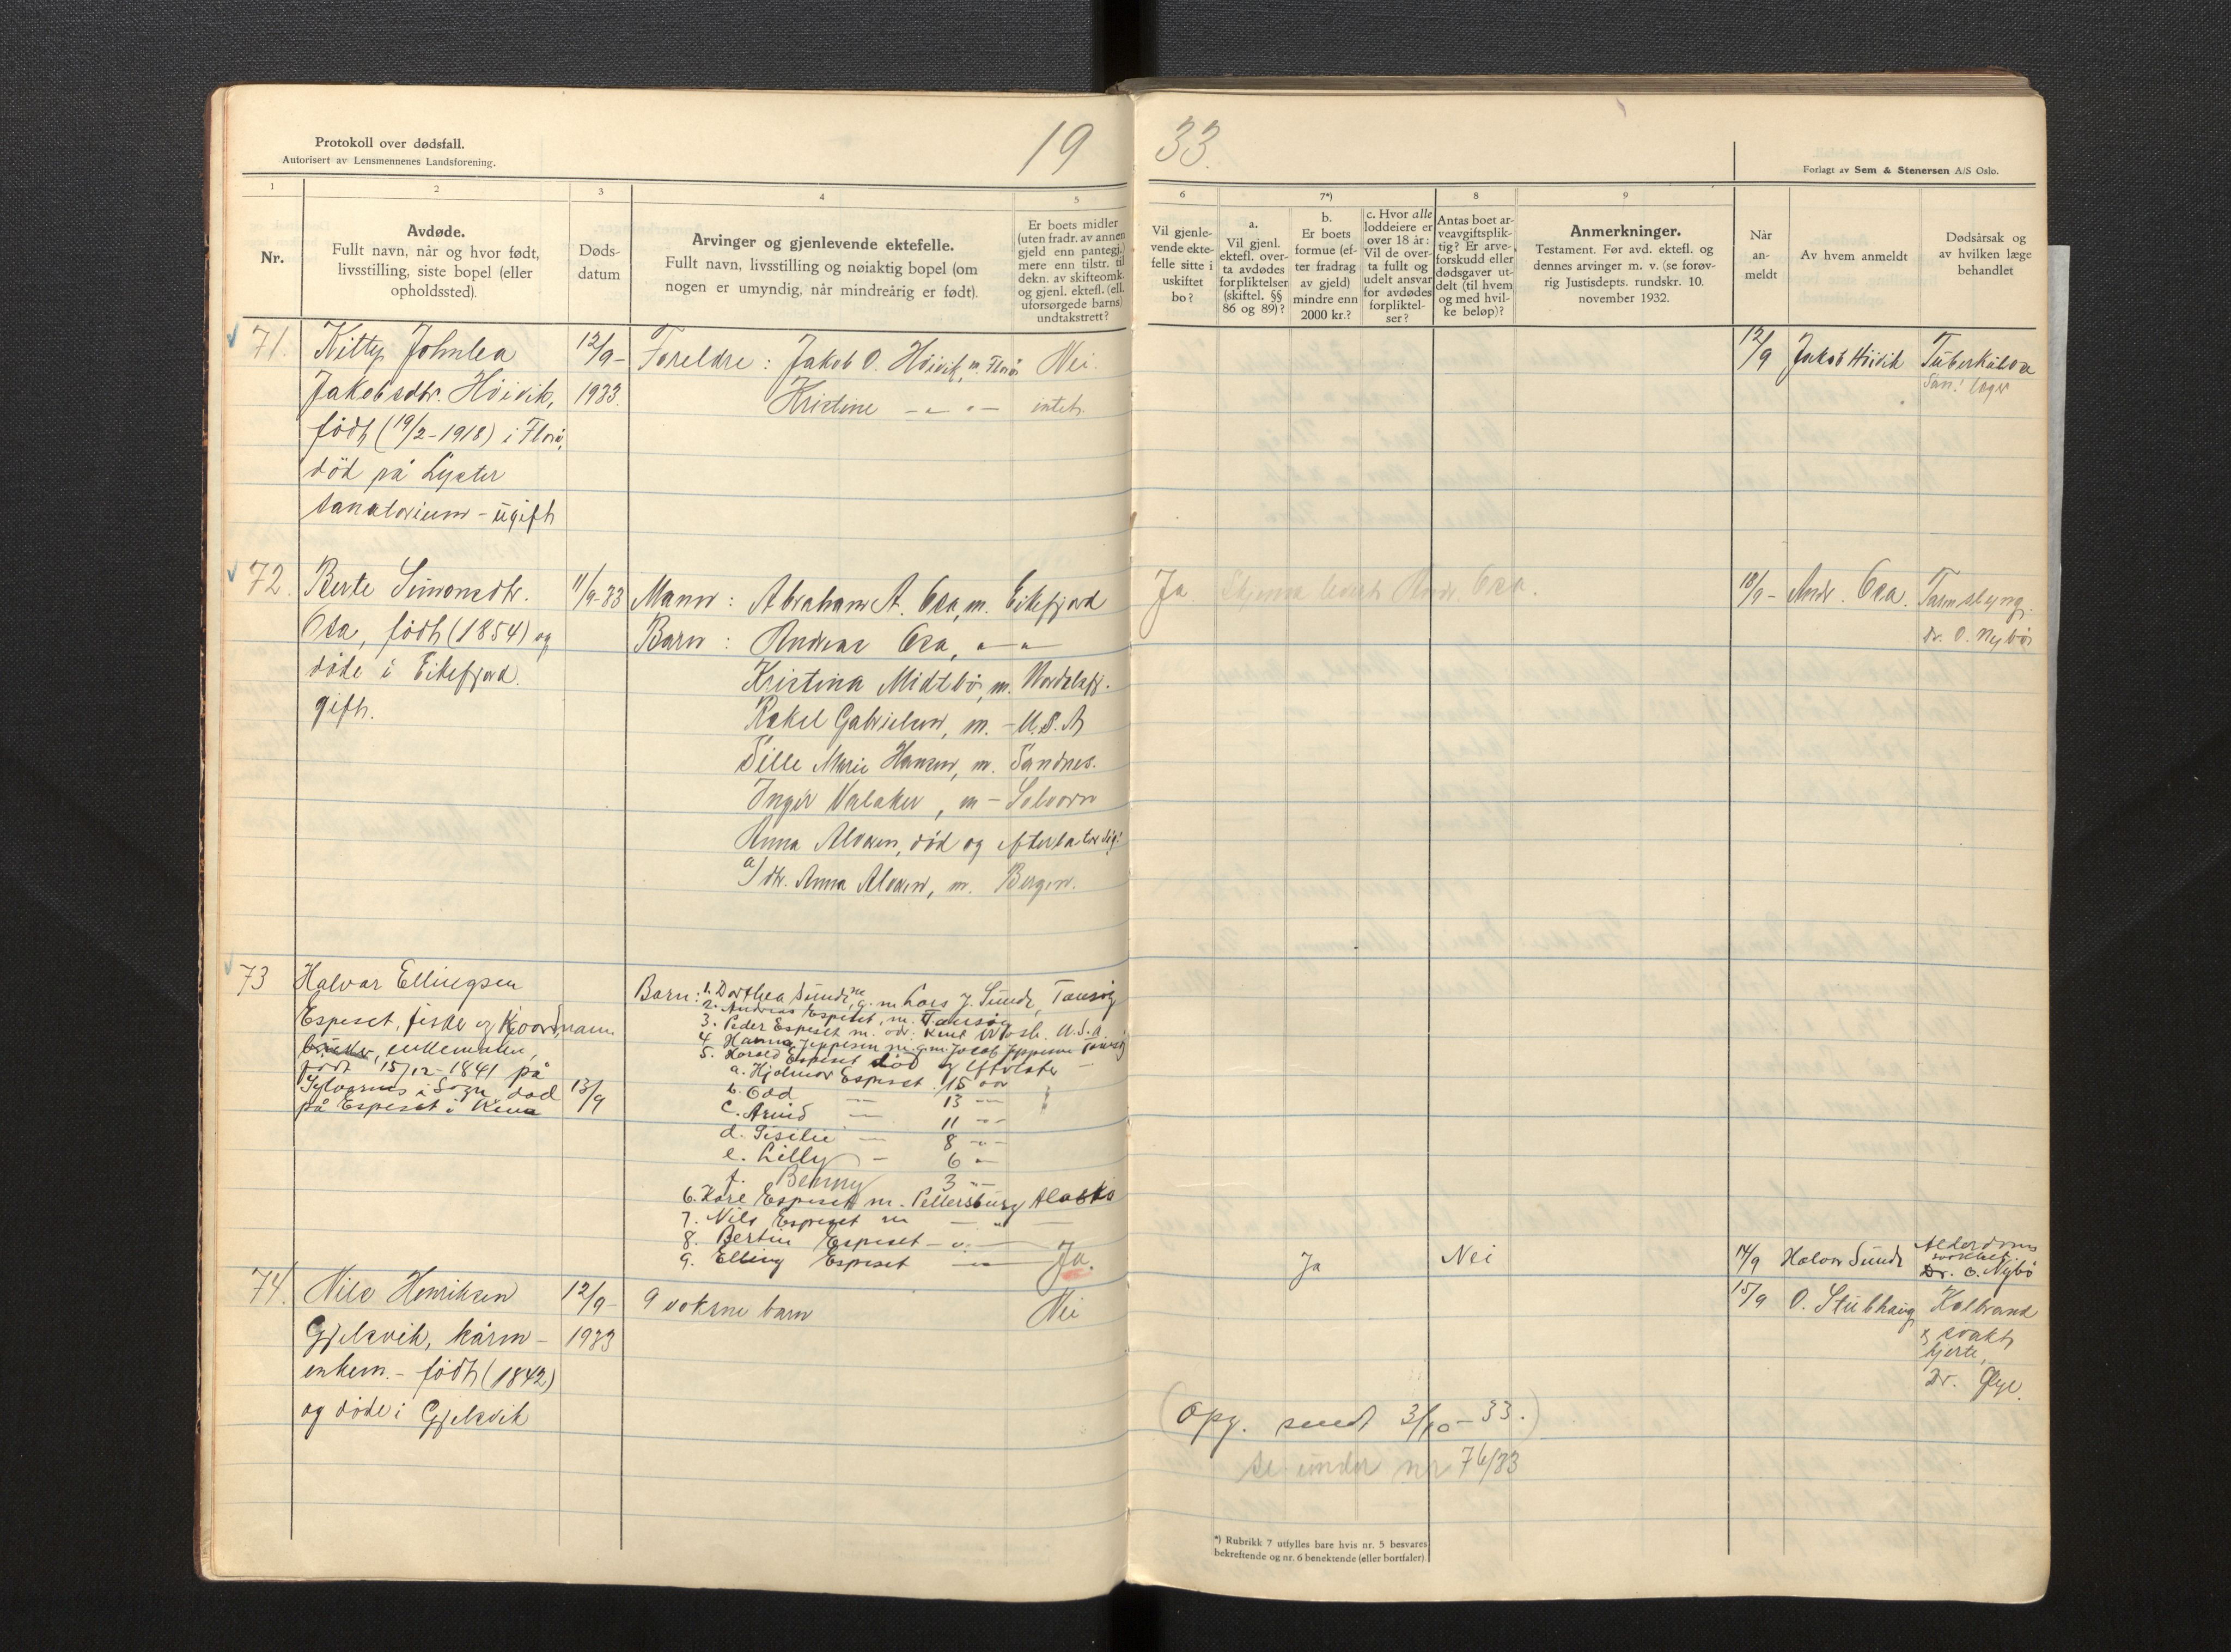 Protokoll over dødsfall.
Autorisert av Lensmennenes Landsforening.
19
33.
Forlagt av Sem & Stenersen A/S Oslo.
1
2
3
4
5
6
7*)
8
9
Nr.
Avdøde.
Fullt navn, når og hvor født,
livsstilling, siste bopel (eller
opholdssted).
Døds-
datum
Arvinger og gjenlevende ektefelle.
Fullt navn, livsstilling og nøiaktig bopel (om
nogen er umyndig, når mindreårig er født).
Er boets midler
(uten fradr. av annen
gjeld enn pantegj.)
mere enn tilstr. til
dekn. av skifteomk.
og gjenl. ektefl. (ell.
uforsørgede barns)
undtakstrett?
Vil gjenle-
vende ekte-
felle sitte i
uskiftet
bo?
a.
Vil gjenl.
ektefl. over-
ta avdødes
forpliktelser
(skiftel. §§
86 og 89)?
b.
Er boets
formue (ef-
ter fradrag
av gjeld)
mindre enn
2000 kr.?
c. Hvor alle
loddeiere er
over 18 år:
Vil de over-
ta fullt og
udelt ansvar
for avdødes
forpliktel-
ser?
Antas boet ar-
veavgiftsplik-
tig? Er arve-
forskudd eller
dødsgaver ut-
delt (til hvem
og med hvil-
ke beløp)?
Anmerkninger.
Testament. Før avd. ektefl. og
dennes arvinger m. v. (se forøv-
rig Justisdepts. rundskr. 10.
november 1932.
Når
an-
meldt
Av hvem anmeldt
Dødsårsak og
av hvilken læge
behandlet
71.
Kitty Johnlea
Jakobsdtr. Höivik,
född (19/2-1918) i Florö,
död på Lyster
sanatorium - ugift
12/9-
1933.
Foreldre: Jakob O. Höivik, m. Florö
Kristine - " -
Nei.
intet.
12/9
Jakob Höivik
Tuberkulose
San. læge
72.
Berte Simonsdtr.
Osa, född (1854) og
döde i Eikefjord.
gift.
11/9-33
Mann: Abraham A. Osa, m. Eikefjord
Barn: Andreas Osa, " "
Kristina Midtbö, m. Nordalsfj.
Rakel Gabrielsen, m. - U.S.A
Sille Marie Hansen, m. Sandnes.
Inger Valaker, m - Solvorn
Anna Alvern, död og efterlater sig:
a/ dtr. Anna Alvern, m. Bergen.
Ja.
Andr. Osa.
18/9-
Andr. Osa.
Tarmslyng.
Dr. O. Nybö
73
Halvar Ellingsen
Espeset, fisker og
enkemann,
född 15/12-1841 på
i Sogn, död
på Espeset i Kinn
13/9
Barn: 1. Dorthea Sunde, g. m. Lars J. Sunde, Tansöy
2. Andreas Espeset, m. Tansöy
3. Peder Espeset m. adr. Kent Wash. U.S.A.
4. Hanna Jeppesen m. g.m. Jacob Jeppesen Tansöy
5. Harald Espeset död og efterlater -
a. Hjalmar Espeset 15 aar
b. Odd - 13 -
c. Arvid - 11 -
d. Cisilie - 8 -
e. Lilly - 6 -
f. Benny 3 -
6. Kare Espeset m. Pettersburg Alaska
7. Nils Espeset m - " -
8. Bertin Espeset - " -
9. Elling Espeset - " -
Ja.
Ja
Nei
14/9
Halvar Sunde
Alderdoms
svakhet
Dr. O. Nybö
74.
Nils Henriksen
Gjelsvik, kårm-
enkem. - född (1842)
og döde i Gjelsvik
12/9-
1933
9 voksne barn
Nei
15/9
O. Stubhaug
Kolbrand
& svakt
hjerte,
Dr.
(Opg. sendt 3/10-33.)
se under nr 76/33
*) Rubrikk 7 utfylles bare hvis nr. 5 besvares
bekreftende og nr. 6 benektende (eller bortfaler)